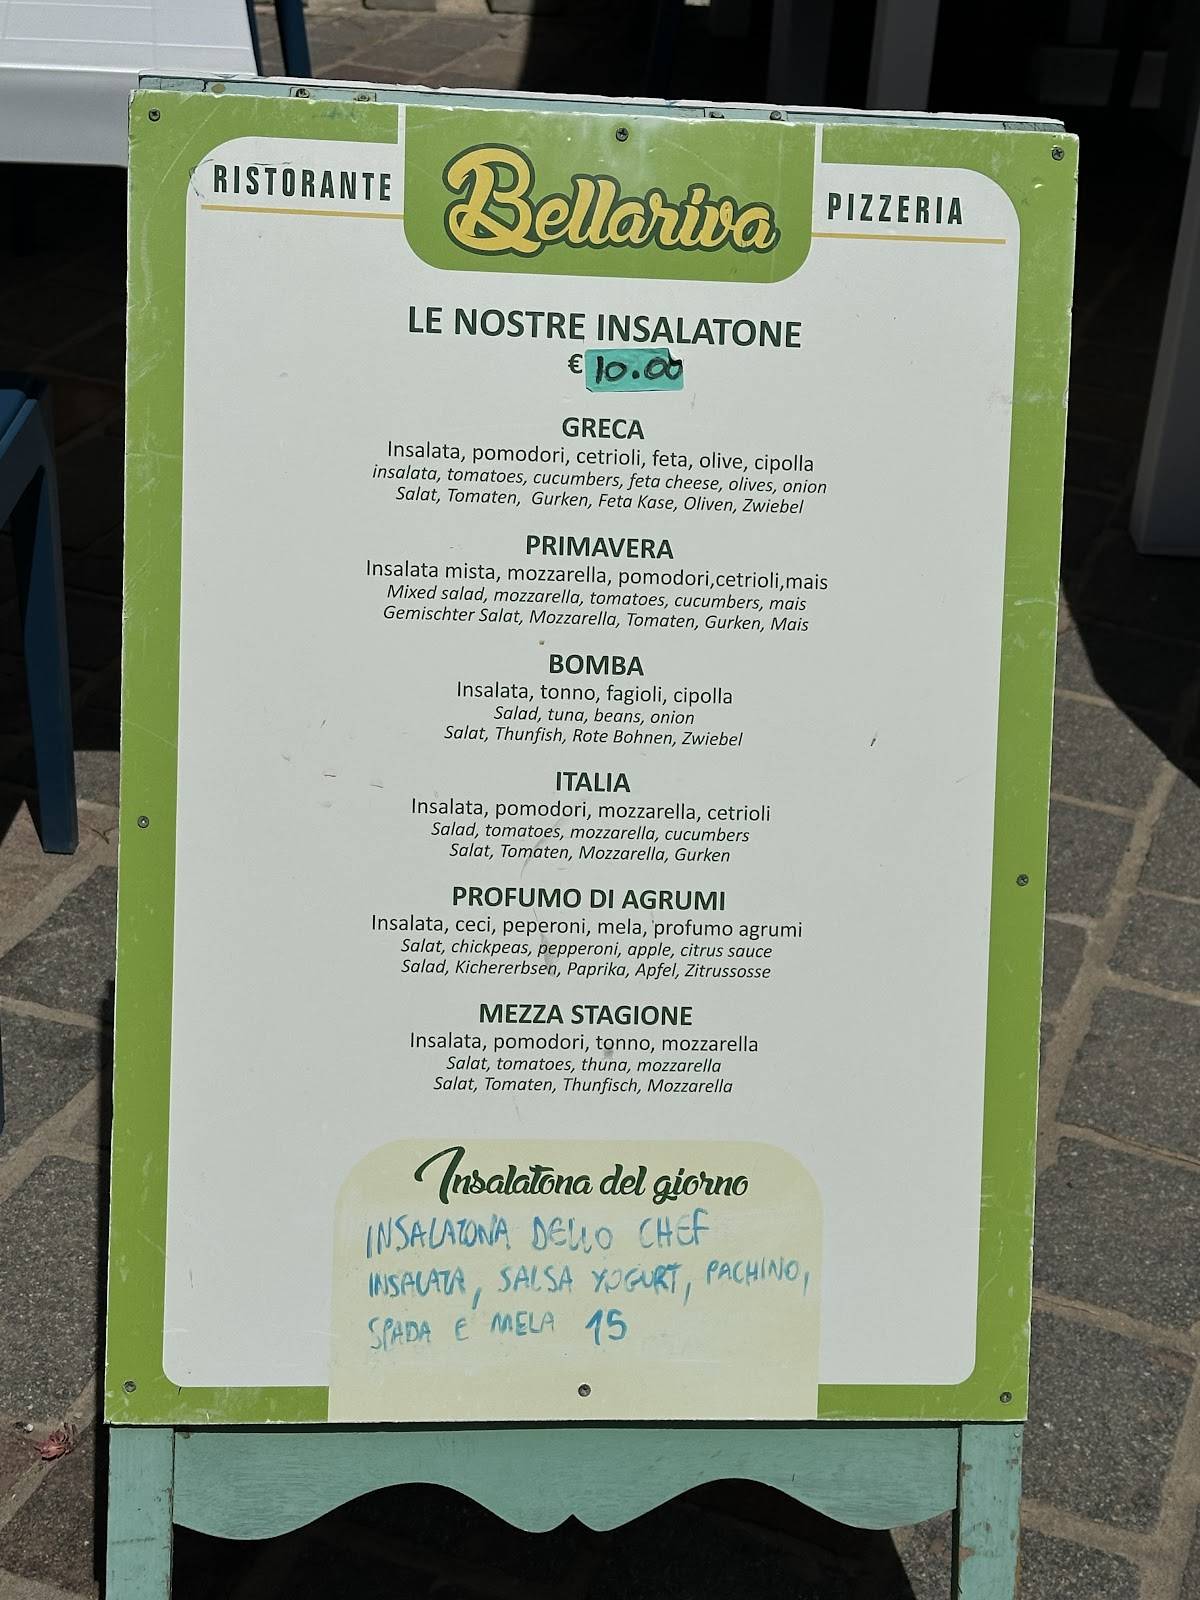 RISTORANTE Bellariva PIZZERIA
LE NOSTRE INSALATONE
€ 10.00
GRECA
Insalata, pomodori, cetrioli, feta, olive, cipolla
insalata, tomatoes, cucumbers, feta cheese, olives, onion
Salat, Tomaten, Gurken, Feta Kase, Oliven, Zwiebel
PRIMAVERA
Insalata mista, mozzarella, pomodori,cetrioli,mais
Mixed salad, mozzarella, tomatoes, cucumbers, mais
Gemischter Salat, Mozzarella, Tomaten, Gurken, Mais
BOMBA
Insalata, tonno, fagioli, cipolla
Salad, tuna, beans, onion
Salat, Thunfish, Rote Bohnen, Zwiebel
ITALIA
Insalata, pomodori, mozzarella, cetrioli
Salad, tomatoes, mozzarella, cucumbers
Salat, Tomaten, Mozzarella, Gurken
PROFUMO DI AGRUMI
Insalata, ceci, peperoni, mela, profumo agrumi
Salat, chickpeas, pepperoni, apple, citrus sauce
Salad, Kichererbsen, Paprika, Apfel, Zitrussosse
MEZZA STAGIONE
Insalata, pomodori, tonno, mozzarella
Salat, tomatoes, thuna, mozzarella
Salat, Tomaten, Thunfisch, Mozzarella
Insalatona del giorno
INSALATONA DELLO CHEF
INSALATA, SALSA YOGURT, PACHINO,
SPADA E MELA 15